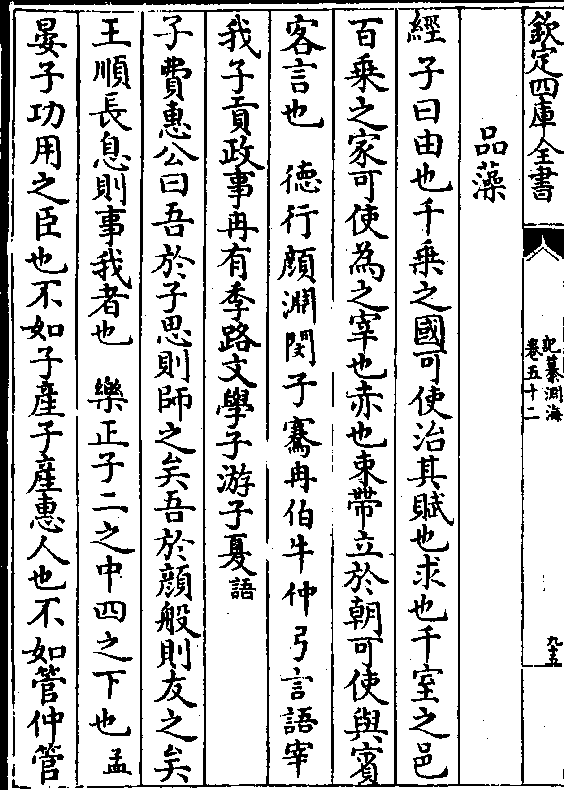 欽定四庫全書
記纂淵海
卷五十二
九十五
品藻
經子曰由也千乗之國可使治其賦也求也千室之邑
百乗之家可使為之宰也赤也束帶立於朝可使與賓
客言也　德行顔淵閔子騫冉伯牛仲弓言語宰
我子貢政事冉有季路文學子游子夏語
子費惠公曰吾於子思則師之矣吾於顔般則友之矣
王順長息則事我者也　樂正子二之中四之下也孟
晏子功用之臣也不如子產子產惠人也不如管仲管